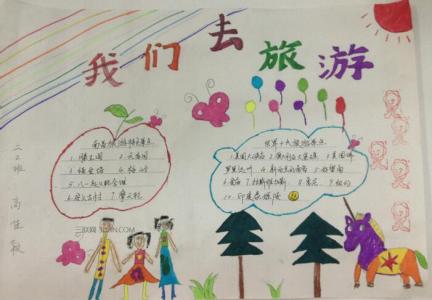 我们去旅游
南昌旅游特色景点
1.滕王阁 2.天香园
3.绳金塔 4.梅岭
5.八一起义纪念馆
6.安义古村 7.摩天轮
世界十大旅游景点
1.美国大峡谷 2.澳大利亚大堡礁 3.美国佛
罗里达州 4.新西兰的南岛 5.好望角
6.金庙 7.拉斯维加斯 8.悉尼 9.纽约
10.印度泰姬陵
三联网 3LIAN.COM
班
高佳